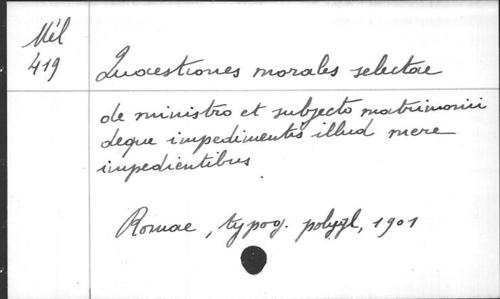 Mél
419
Quaestiones morales selectae
de ministro et subjecto matrimonii
deque impedimentis illud mere
impedientibus
Romae, typog. polygl, 1901